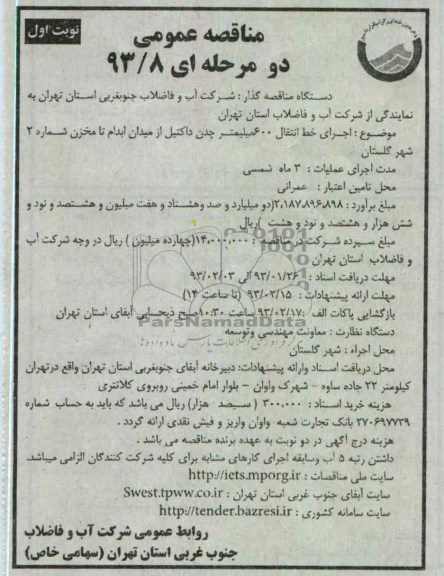 نوبت اول
مناقصه عمومی
دو مرحله ای ۹۳/۸
دستگاه مناقصه گذار : شرکت آب و فاضلاب جنوبغربی استان تهران به
نمایندگی از شرکت آب و فاضلاب استان تهران
موضوع : اجرای خط انتقال ۶۰۰میلیمتر چدن داکتیل از میدان ابدام تا مخزن شماره ۲
شهر گلستان
مدت اجرای عملیات : ۳ ماه شمسی
محل تامین اعتبار : عمرانی
مبلغ برآورد : ۲،۱۸۷،۸۹۶،۸۹۸(دو میلیارد و صد وهشتاد و هفت میلیون و هشتصد و نود و
شش هزار و هشتصد و نود و هشت )ریال
مبلغ سپرده شرکت در مناقصه : ۱۴،۰۰۰،۰۰۰(چهارده میلیون ) ریال در وجه شرکت آب
و فاضلاب استان تهران
مهلت دریافت اسناد : ۹۳/۰۱/۲۶ الی ۹۳/۰۲/۰۳
مهلت ارائه پیشنهادات : ۹۳/۰۲/۱۵ (تا ساعت ۱۴)
بازگشایی پاکات الف :۹۳/۰۲/۱۷ ساعت ۱۰:۳۰صبح ذیحسابی آبفای استان تهران
ParsNamadData
دستگاه نظارت : معاونت مهندسی وتوسعه
محل اجراء : شهر گلستان
محل دریافت اسناد وارائه پیشنهادات: دبیرخانه آبفای جنوبغربی استان تهران واقع درتهران
کیلومتر ۲۲ جاده ساوه - شهرک واوان - بلوار امام خمینی روبروی کلانتری
هزینه خرید اسناد : ۳۰۰،۰۰۰ ( سیصد هزار) ریال می باشد که باید به حساب شماره
۲۷۰۶۹۷۷۳۹ بانک تجارت شعبه واوان واریز و فیش نقدی ارائه گردد .
هزینه درج آگهی در دو نوبت به عهده برنده مناقصه می باشد .
داشتن رتبه ۵ آب وسابقه اجرای کارهای مشابه برای کلیه شرکت کنندگان الزامی میباشد.
سایت ملی مناقصات : http://iets.mporg.ir
سایت آبفای جنوب غربی استان تهران : Swest.tpww.co.ir
سایت سامانه کشوری : http://tender.bazresi.ir
روابط عمومی شرکت آب و فاضلاب
جنوب غربی استان تهران (سهامی خاص)